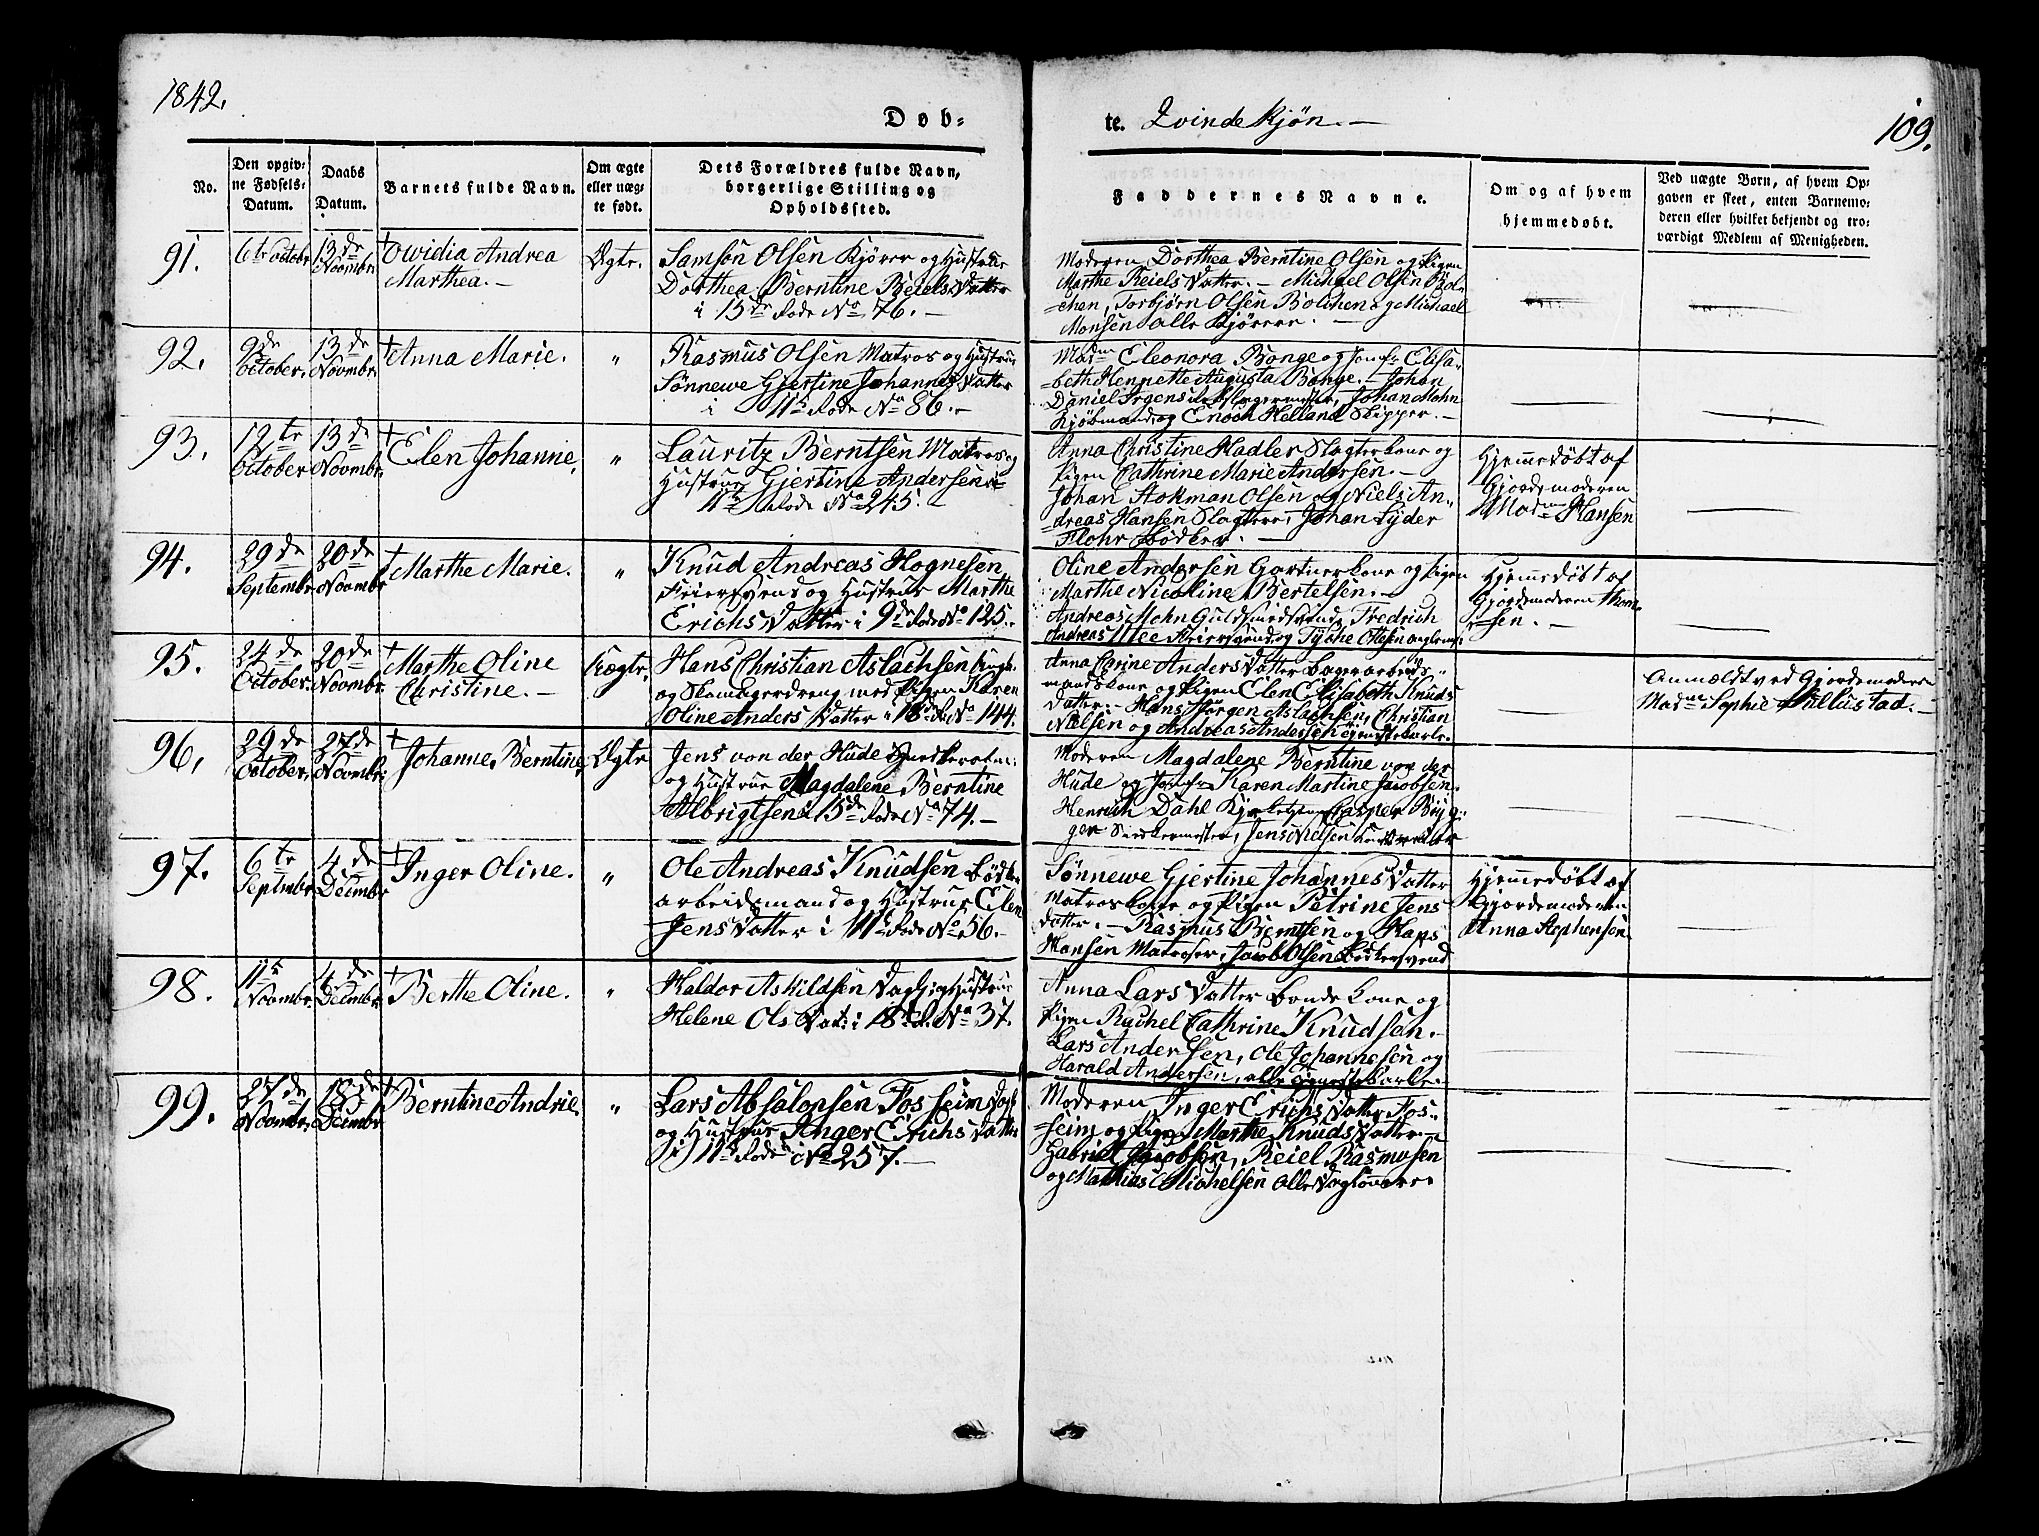 1842.
Døb-
te. Qvindekjøn.
109.
No.
Den opgiv-
ne Fødsels-
Datum.
Daabs
Datum.
Barnets fulde Navn.
Om ægte
eller uæg-
te født.
Dets Forældres fulde Navn,
borgerlige Stilling og
Opholdssted.
Faddernes Navne.
Om og af hvem
hjemmedøbt.
Ved uægte Børn, af hvem Op-
gaven er skeet, enten Barnemo-
deren eller hvilket bekjendt og tro-
værdigt Medlem af Menigheden.
91.
6te Octobr
13de
Novmbr.
+ Owidia Andrea
Marthea.
Ægte.
Samson Olsen Kjører og Hustrue
Dorthea Berntine Reiels Datter
i 13de Rode No 76.
Moderen Dorthea Berntine Olsen og Pigen
Marthe Reiels Datter. Michael Olsen Bol-
chen, Torbjørn Olsen Bolchen og Michael
Monsen alle Kjørere.
92.
9de
October.
13de
Novmbr.
+ Anna Marie.
"
Rasmus Olsen Matros og Hustrue
Sønnewe Gjertine Johannes Datter
i 11te Rode No 86.
Madme Eleonora Bonge og Jomfr Elisa-
beth Hennette Augusta Bonge. Johan
Daniel Johan Mohn
Kjøbmand og Enoch Helland Skipper.
93.
12te
October
13de
Novmbr.
+ Elen Johanne.
"
Lauritz Berntsen Matros og
Hustrue Gjertine Andersen i
11te Rode No 245.
Anna Christine Hadler Slagterkone og
Pigen Cathrine Marie Andersen.
Johan Stokman Olsen og Niels An-
dreas Hansen Slagtere, Johan Lyder
Flohr Bødker.
Hjemmedøbt af
Gjordemoderen
Madme Hansen
94.
29de
Septembr
20de
Novmbr
+ Marthe Marie.
"
Knud Andreas Hognesen
Feiersvend og Hustrue Marthe
Erichs Datter i 9de Rode No 125.
Oline Andersen Gartnerkone og Pigen
Marthe Nicoline Bertelsen.
Andreas Mohn Guldsmedsvend, Fredrich
Andreas Feiersvend og Tyche Olsen
Hjemmedøbt af
Gjordemoderen Thom-
sen.
95.
24de
October.
20de
Novmbr.
+ Marthe Oline
Christine.
Uægte.
Hans Christian Aslachsen
og Skomagerdreng med Pigen Karen
Oline Anders Datter i 18de R. No 144.
Anna Carine Anders Datter arbeids-
mandskone og Pigen Elen Elisabeth Knuds
Datter. Hans Jørgen Aslachsen, Christian
Nielsen og Andreas Andersen
Anmældt ved Gjordemoder
Madme Sophie Hillustad.
96.
29de
October.
27de
Novmbr.
+ Johanne Berntine.
Ægte
Jens von der Hude
og Hustrue Magdalene Berntine
Albrigtsen i 15de Rode No 74.
Moderen Magdalene Berntine von der
Hude og Jomfr Karen Martine Jacobsen.
Henrich Dahl Casper Bryg-
ger Snedkermester, Jens Nielsen
97.
6te
Septembr
4de
Decmbr
+ Inger Oline.
"
Ole Andreas Knudsen Bødker
arbeidsmand og Hustrue Elen
Jens Datter i 11te Rode No 56.
Sønnewe Gjertine Johannes Datter
Matroskone og Pigen Petrine Jens
Datter. Rasmus Berntsen og Hans
Hansen Matroser, Jacob Olsen
Hjemmedøbt af
Gjordemoderen
Anna Stephensen.
98.
11te
Novmbr.
4de
Decmbr.
+ Berthe Oline.
"
Haldor Askildsen Dagl. og Hustrue
Helene Ols Dat: i 18de R. No 37.
Anna Lars Datter Bonde kone og
Pigen Rachel Cathrine Knudsen.
Lars Andersen, Ole Johannesen og
Harald Andersen, alle
99.
27de
Novmbr.
18de
Decmbr.
+ Berntine Andrie.
"
Lars Absalonsen Fosseim Dagl
og Hustrue Inger Erichs Datter
i 11te Rode No 257.
Moderen Inger Erichs Datter Fos-
seim og Pigen Marthe Knuds Datter.
Gabriel Jacobsen, Reiel Rasmusen
og Mathias Michelsen alle Daglønnere.